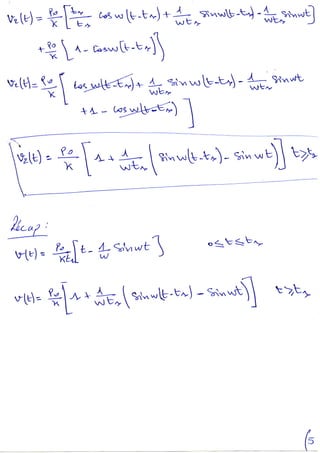 v₂(t) = P₀/K [ t₁/t₁ - cos w(t-t₁) + 1/wt₁ sin w(t-t₁) - 1/wt₁ sin wt ]
+ P₀/K [ 1 - cos w(t-t₁) ]
v₂(t) = P₀/K [ cos w(t-t₁) + 1/wt₁ sin w(t-t₁) - 1/wt₁ sin wt
+ 1 - cos w(t-t₁) ]
v₂(t) = P₀/K [ 1 + 1/wt₁ ( sin w(t-t₁) - sin wt ) ] t ≥ t₁
Récap :
v(t) = P₀/Kt₁ [ t - 1/w sin wt ] 0 ≤ t ≤ t₁
v(t) = P₀/K [ 1 + 1/wt₁ ( sin w(t-t₁) - sin wt ) ] t ≥ t₁
(5